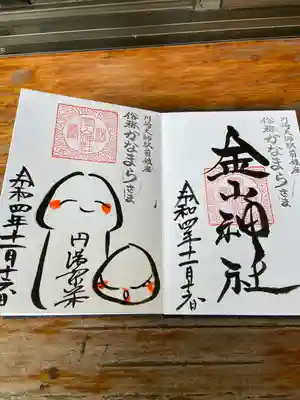 川崎大師駅前鎮座
俗称かなまらさま
金山神社
令和四年十一月十六日
川崎大師駅前鎮座
俗称かなまらさま
円満
令和四年十一月十六日